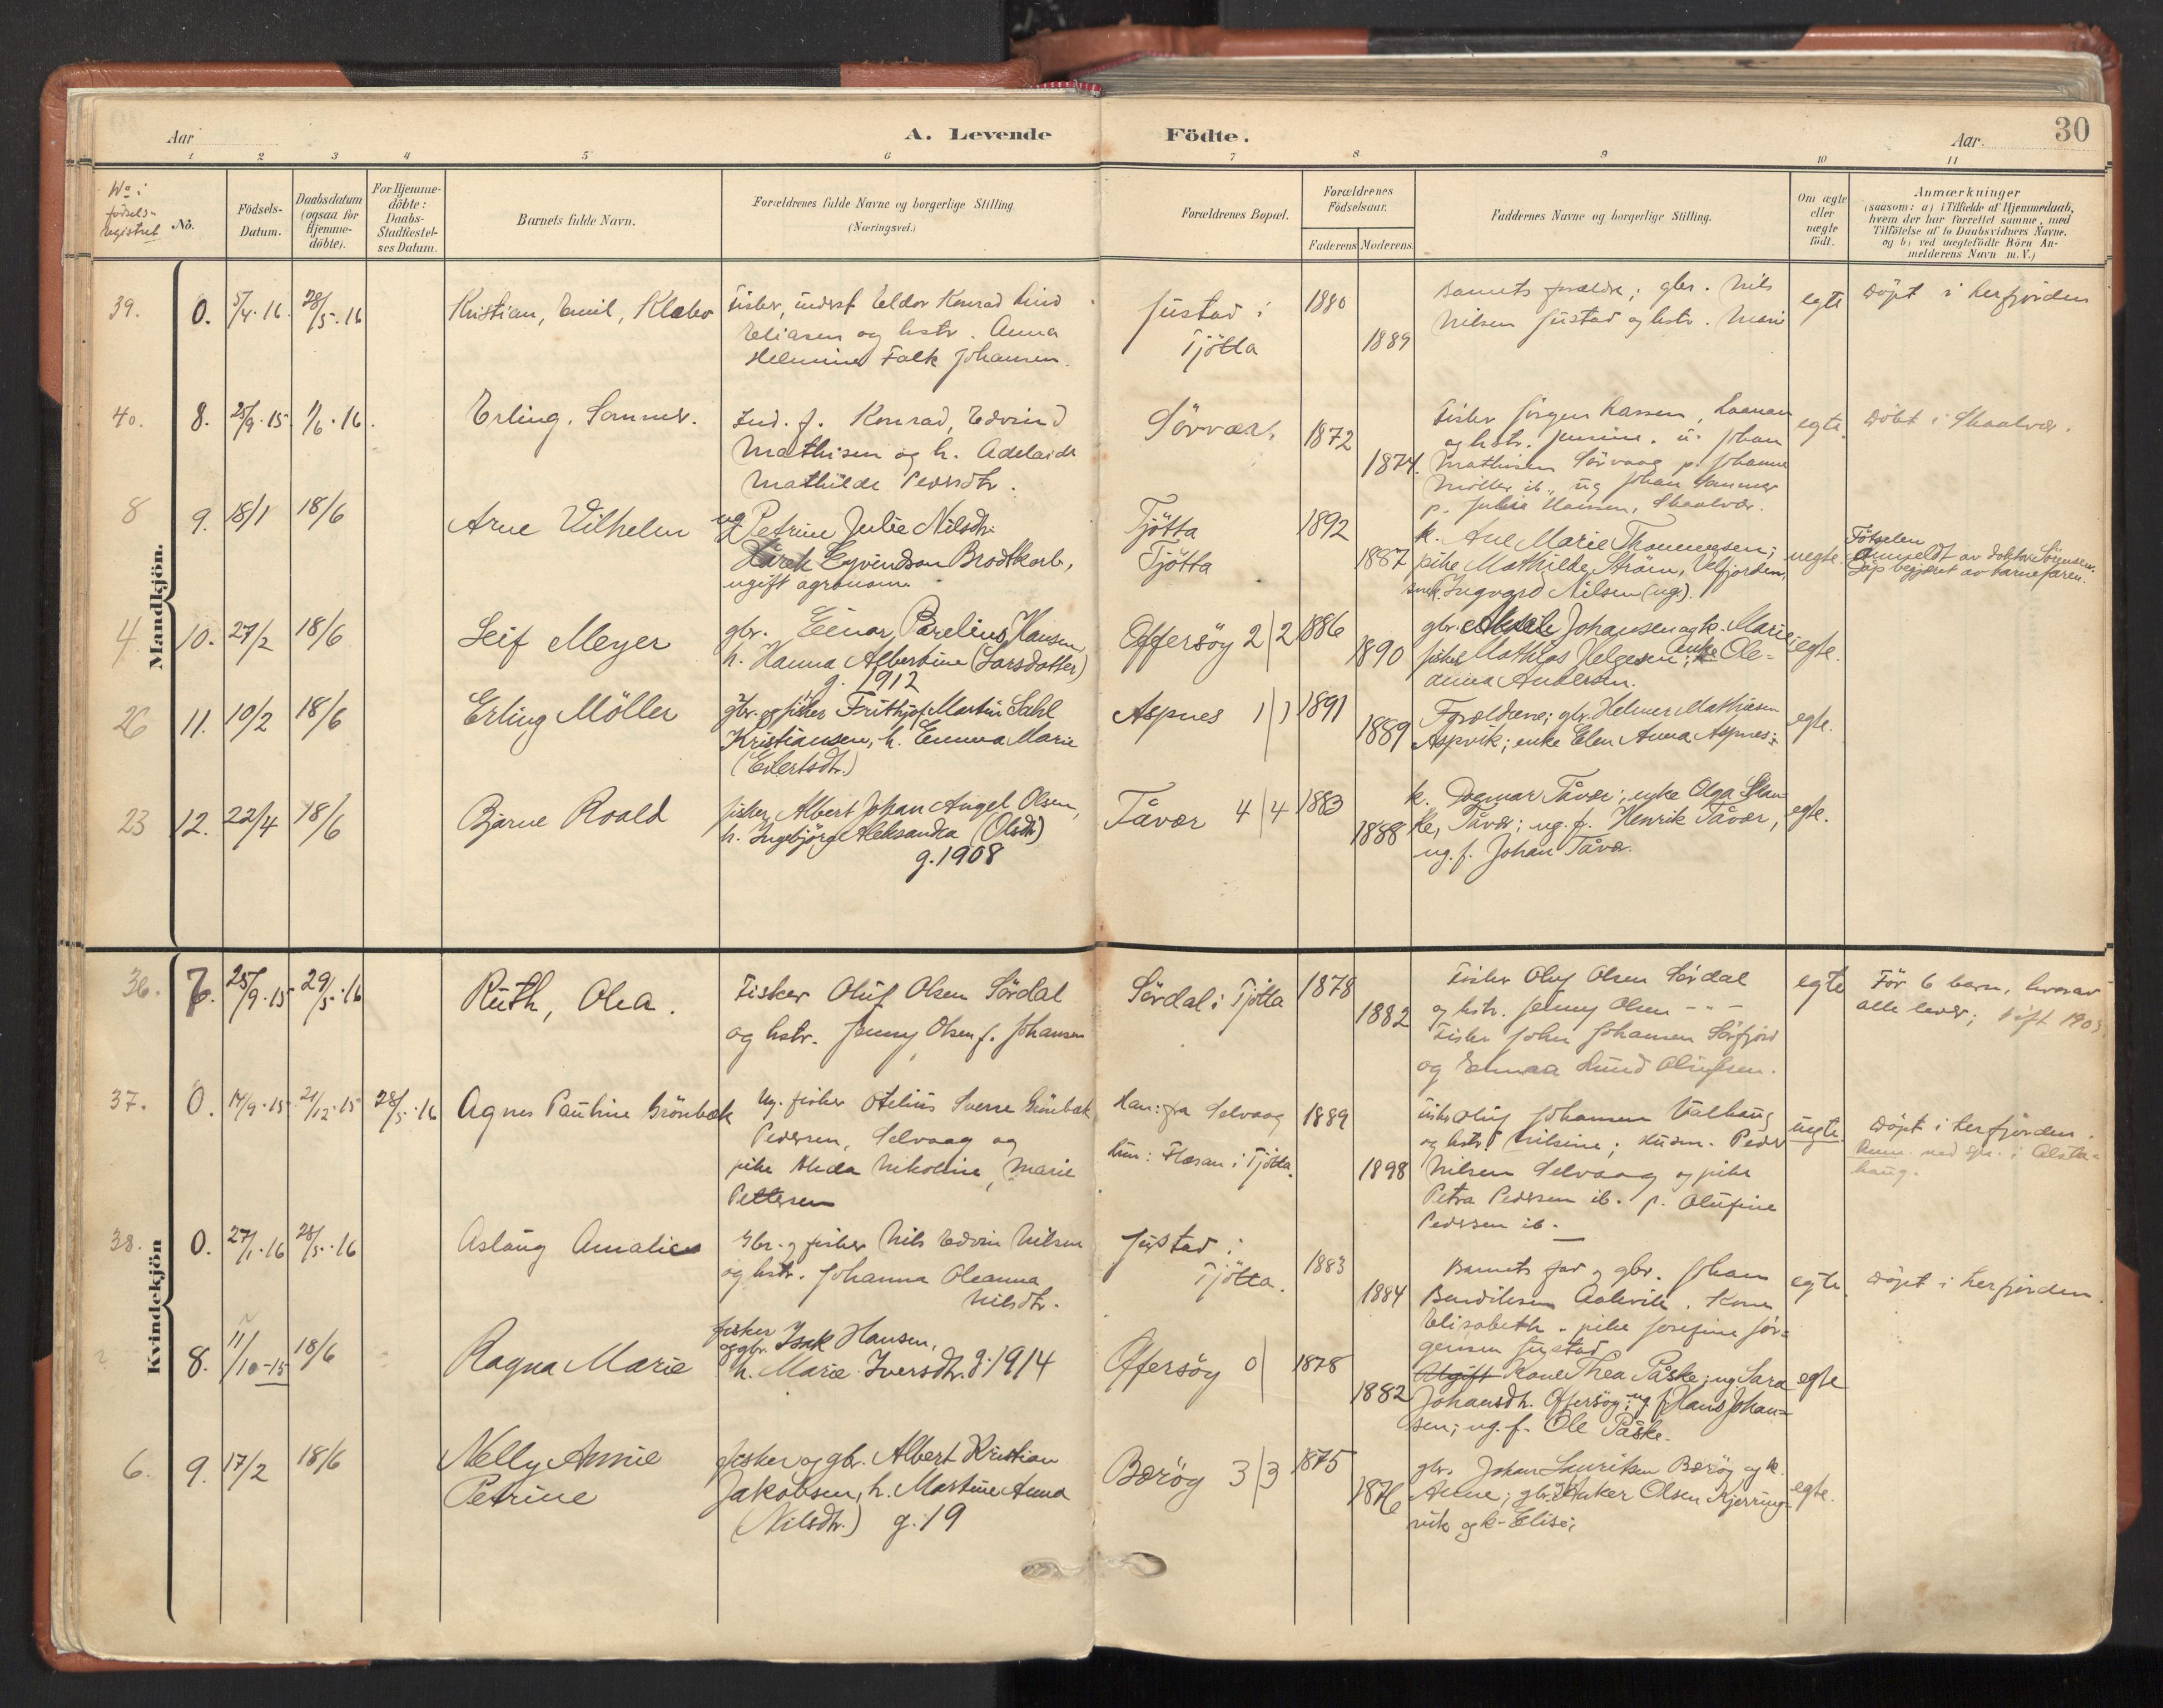 Aar
A. Levende Födte.
Aar.
30
1 2 3 4 5 6 7 8 9 10 11
No i fødsels-registret
No.
Födsels-Datum.
Daabsdatum (ogsaa for Hjemme-döbte).
For Hjemme-döbte: Daabs-Stadfæstel-ses Datum.
Barnets fulde Navn.
Forældrenes fulde Navne og borgerlige Stilling.
(Næringsvei.)
Forældrenes Bopæl.
Forældrenes Födselsaar.
Faderens Moderens
Faddernes Navne og borgerlige Stilling.
Om ægte eller uægte födt.
Anmærkninger
(saasom: a) i Tilfælde af Hjemmedaab,
hvem der har forrettet samme, med
Tilföielse af to Daabsvidners Navne,
og b) ved uægtefödte Börn An-
melderens Navn m. V.)
Mandkjön.
39. 0. 5/4.16 28/5.16
Kristian, Emil, Klæbo
Fisker, inderst Eldor Konrad Lind
Eliasen og hstr. Anna
Helmine Falk Johansen.
Justad i
Tjötta
1880
1889
Barnets forældre; gbr. Nils
Nilsen Justad og hstr. Mari
egte
Döpt i Herfjorden
40. 8. 25/9.15 1/6.16
Erling. Sommer.
Ind. f. Konrad, Edvind
Mathisen og h. Adelaide
Mathilde Pedersdtr.
Sörvær.
1872
1874.
Fisker Jörgen Hansen,
og hstr. Jensine. u. Johan
Mathisen Sörvaag p. Johanna
Möller ib., ug Johan Sommer
p. Julie Hansen, Skaalvær.
egte.
Döbt i Skaalvær.
8 9. 18/1 18/6
Arne Vilhelm
ug Petrine Julie Nilsdtr.
Hårek Eyvindson Brodtkorb,
ugift agronom
Tjötta
Tjötta
1892
1887
k. Ane Marie Thommesen;
pike Mathilde Ström, Velfjorden,
snek. Ingvard Nilsen (ug).
uegte.
Fötselen
anmeldt av doktor Sörensen.
Dåp begjæret av barnefaren.
4 10. 27/2 18/6
Leif Meyer
gbr. Einar Parelius Hansen
h. Hanna Albertine (Larsdatter)
g. 1912
Offersöy 2/2
1886
1890
gbr. Johansen og k. Marie;
fisker Mathias Helgesen; enke Ole-
anna Andersen.
egte.
26 11. 10/2 18/6
Erling Möller
gbr. og fisker Frithjof Martin Dahl
Kristiansen, h. Emma Marie
(Eilertsdtr.)
Aspnes 1/1
1891
1889
Forældrene; gbr. Helmer Mathiesen
Aspvik; enke Elen Anna Aspnes.
egte.
23 12. 22/4 18/6
Bjarne Roald
fisker Albert Johan Angel Olsen,
h. Ingebjörg Aleksandra (Olsdtr)
g. 1908
Tåvær 4/4
1883
1888
k. Dagmar Tåvær; enke Olga Slan-
ke, Tåvær; ug. f. Henrik Tåvær,
ug. f. Johan Tåvær.
egte.
Kvindekjön
36. 7. 25/9.15 29/5.16
Ruth, Olea.
Fisker Oluf Olsen Sördal
og hstr. Jenny Olsen f. Johansen
Sördal i Tjötta
1878
1882
Fisker Oluf Olsen Sördal
og hstr. Jenny Olsen - " -
Fisker John Johansen Sörfjord
og Emma Lund Olufsen.
egte
Før 6 barn, hvorav
alle lever; Gift 1903
37. 0. 14/9.15 21/12.15 28/5.16
Agnes Pauline Grönbæk
Ug. fisker Otelius Sverre Grönbæk
Pedersen, Selvaag og
pike Alida Nikoline, Marie
Pettersen
Han: fra Selvaag
Hun: Flæsan i Tjötta.
1889
1898
fisker Oluf Johansen Valhaug
og hstr. Nilsine; Husm. Peder
Nilsen Selvaag og pike
Petra Pedersen ib. p. Olufine
Pedersen ib.
uegte.
Döpt i Herfjorden.
Anm. ved spr. i Alsta-
haug.
38. 0. 27/1.16 28/5.16
Aslaug Amalie
Gbr. og fisker Nils Edvin Nilsen
og hstr. Johanna Oleanna
Nilsdtr.
Justad i
Tjötta.
1883
1884
Barnets far og gbr. Johan
Bendiksen Aakvik. Kone
Elisabeth. pike Josefine Jör-
gensen Justad
egte
Döpt i Herfjorden.
? 8. 11/10-15 18/6
Ragna Marie
fisker og gbr. Isak Hansen,
h. Marie Iversdtr. g. 1914
Offersöy 0/
1878
1882
Ugift Kone Thea Påske; ug Sara
Johansdtr. Offersöy; ug. f. Hans Johan-
sen; ug. f. Ole Påske.
egte
6. 9. 17/2 18/6
Nelly Annie
Petrine
fisker og gbr. Albert Kristian
Jakobsen, h. Martine Anna
(Nilsdtr.) g. 19
Båröy 3/3
1875
1876
gbr. Johan Lauritsen Båröy og k.
Anne; gbr. Haker Olsen Kjerring-
vik og k. Elise;
egte.